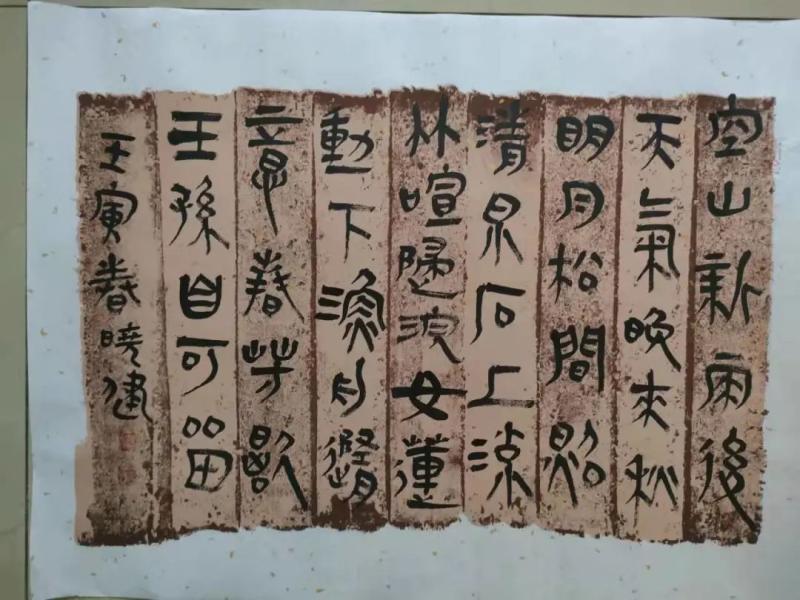 空山新雨後
天氣晚來秋
明月松間照
清泉石上流
竹喧歸浣女蓮
動下漁舟隨
意春芳歇
王孫自可留
壬寅春曉建